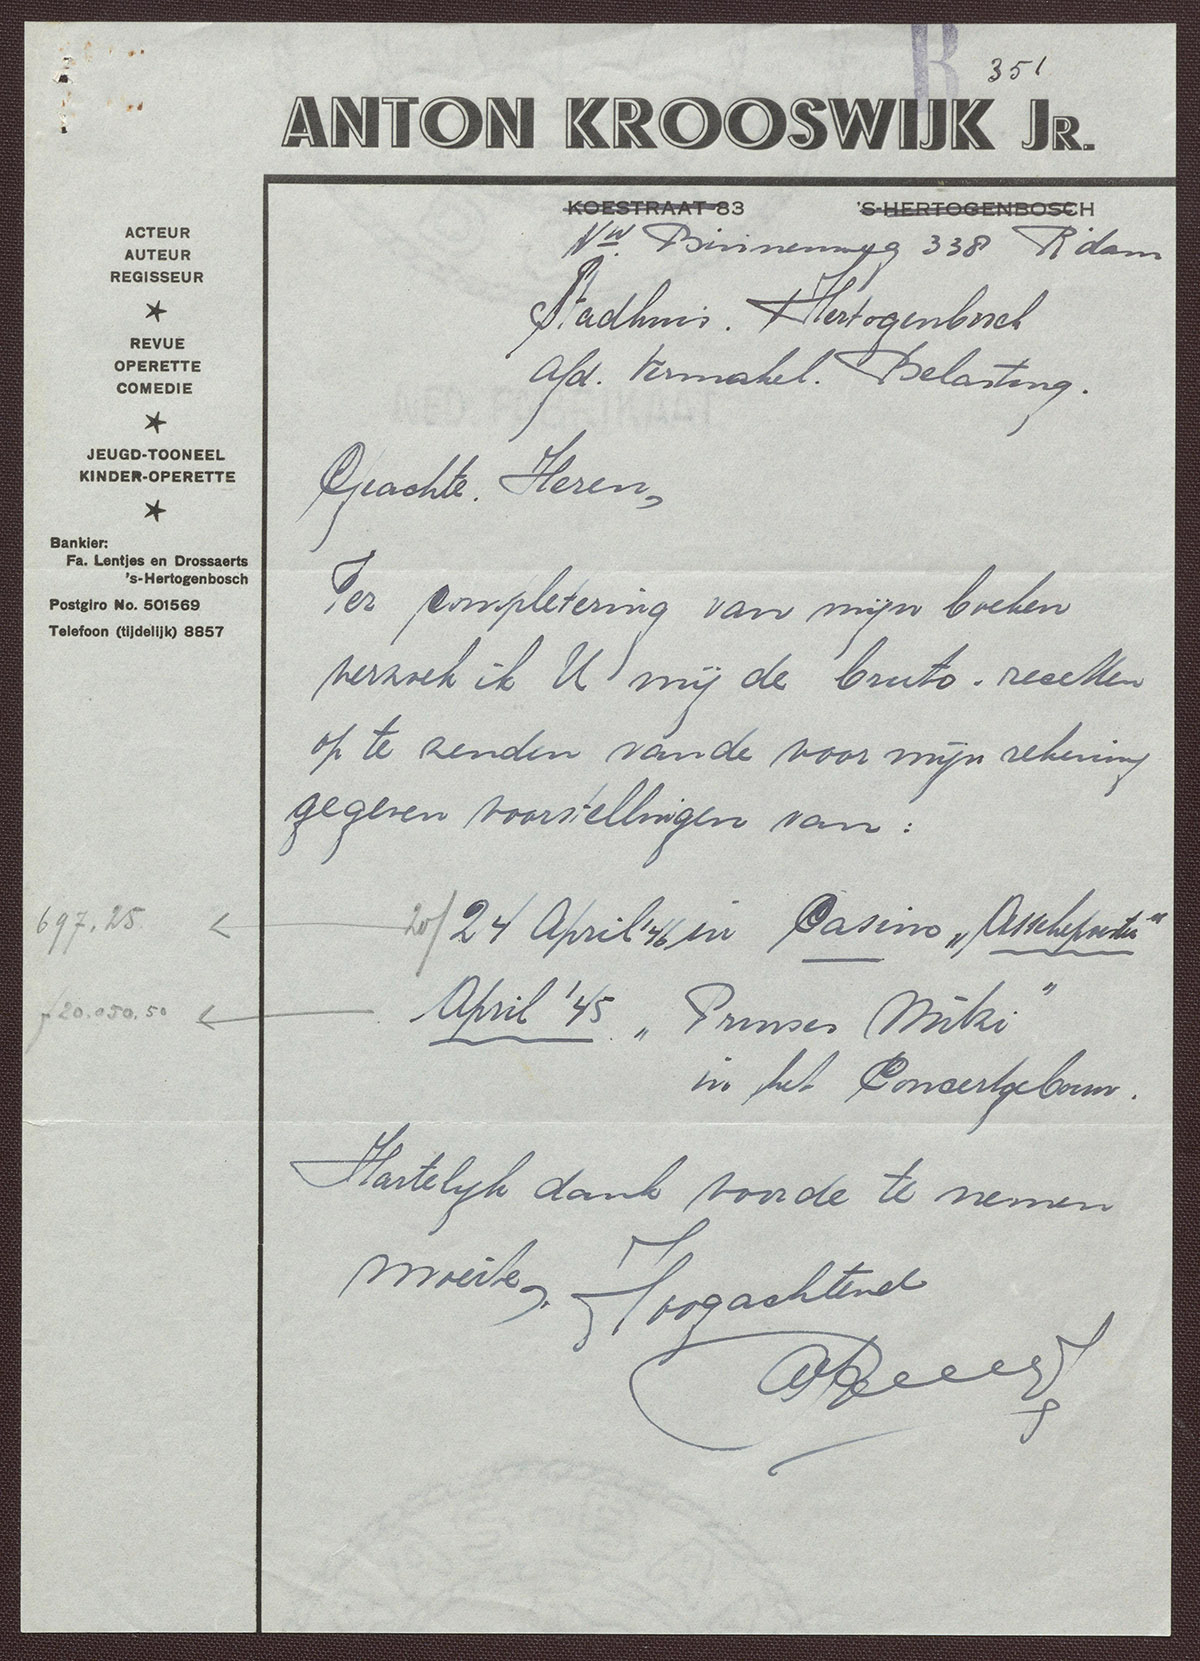 351
ANTON KROOSWIJK JR.
KOESTRAAT 83 'S-HERTOGENBOSCH
Nw. Binnenweg 338 R'dam
ACTEUR
AUTEUR
REGISSEUR
REVUE
OPERETTE
COMEDIE
JEUGD-TOONEEL
KINDER-OPERETTE
Bankier:
Fa. Lentjes en Drossaerts
's-Hertogenbosch
Postgiro No. 501569
Telefoon (tijdelijk) 8857
Stadhuis. Hertogenbosch
Afd. Vermakel. Belasting.
Geachte. Heren,
Ter completering van mijn boeken
verzoek ik U mij de bruto. recetten
op te zenden van de voor mijn rekening
gegeven voorstellingen van:
697.25 20/24 April '46 in Casino „Asschepoester"
f 20.050.50 April '45 „Prinses Mitzi"
in het Concertgebouw.
Hartelijk dank voor de te nemen
moeite,
Hoogachtend